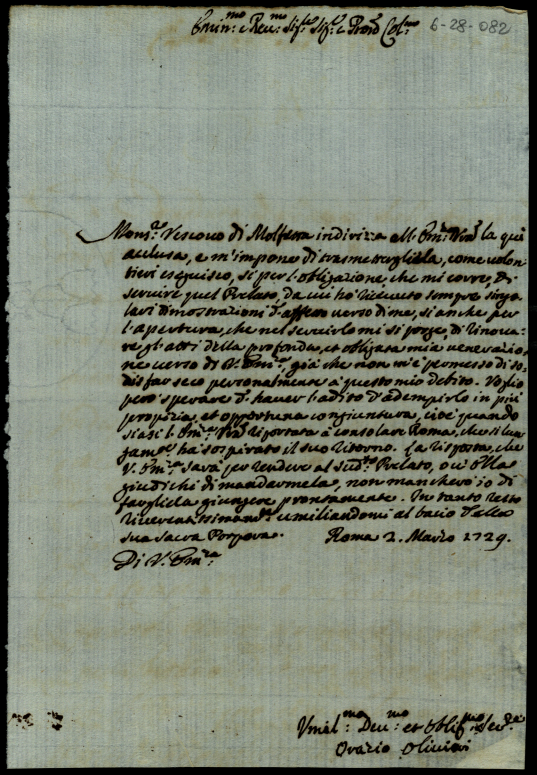 Emin.mo e Rev.mo Sig.re Sig.re e Pron Col.mo
6-28-082
Mons.r Vescovo di Molfetta indiriza all' Em.a V.ra la quì
acclusa, e m'impone di trasmetergliela, come volon-
tieri eseguisco, si per l'obligazione, che mi corre, di
servire quel Prelato, da cui hò ricevuto sempre singo-
lari dimostrazioni d'affetto verso di me, si anche per
l'apertura, che nel servirlo mi si porge, di rinova-
re gl'atti della profonda, et obligata mia venerazio-
ne verso di V. Em.a, già che non m'è permesso di so-
disfar seco personalmente à questo mio debito. Voglio
però sperare d'haver l'adito d'adempirlo in più
propizia, et opportuna congiuntura, cioè quando
siasi l'Em.a V.ra riportata à consolare Roma, che si lun-
gam.te hà sospirato il suo ritorno. La risposta, che
V. Em.a sarà per rendere al sud.o Prelato, ove Ella
giudichi di mandarmela, non mancherò io di
farglicla giungere prontamente. In tanto resto
riverentissimam.te umiliandomi al bacio della
sua Sacra Porpora. Roma 2. Marzo 1729.
Di V. Em.za
Umil.mo Dev.mo et Oblig.mo Ser.re
Orazio Olivieri